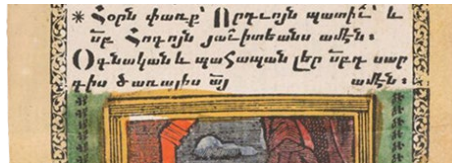 ✻ Հօրն փառք՝ Որդւոյն պատիւ՝ և
սբ Հոգոյն յաւիտեանս ամէն։
Օգնական և պահապան լեր սբդ սար
գիս ծառայիս այ ամէն։